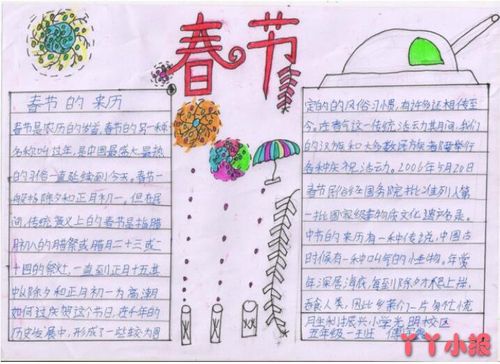 春节
春节的来历
春节是农历的岁首,春节的另一种
名称叫过年,是中国最盛大最热
的 一直延续到今天。春节一
般指除夕和正月初一。但在民
间,传统意义上的春节是指腊
月初八的腊祭或腊月二十三或二
十四的祭灶,一直到正月十五其
中以除夕和正月初一为高潮
如何过庆贺这个节日,在千年的
历史发展中,形成了一些较为固
定的的风俗习惯,有许多还相传至
今。在春节这一传统 期间,我们
的汉族和大多数 都要举行
各种庆祝活动。2006年5月20日
春节民俗 国务院批准列入第
一批国家级 物质文化遗产名录。
中节的来历有一种传说,中国古
时候有一种叫 的 年
年深居海底,每到除夕才 上岸,
吞食人类,因此
小学光明校区
五年级一班
丫丫小报